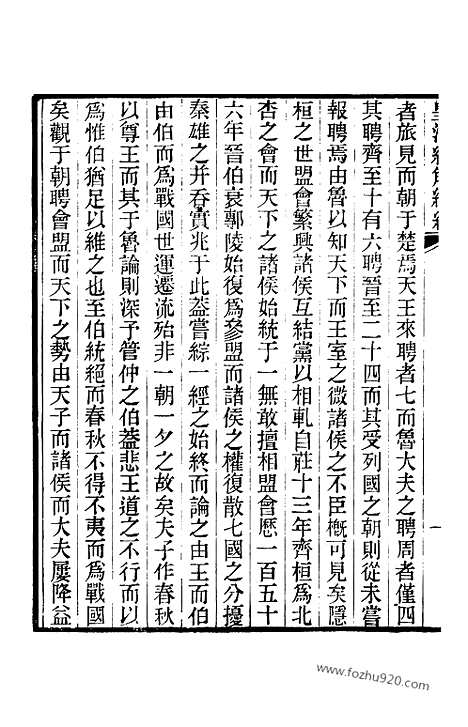 皇清經解續編
者旅見而朝于楚焉天王來聘者七而魯大夫之聘周者僅四
其聘齊至十有六聘晉至二十四而其受列國之朝則從未嘗
報聘焉由魯以知天下而王室之微諸侯之不臣槪可見矣隱
桓之世盟會繁興諸侯互結黨以相軋自莊十三年齊桓爲北
杏之會而天下之諸侯始統于一無敢擅相盟會歷一百五十
六年晉伯衰鄟陵始復爲參盟而諸侯之權復散七國之分擾
秦雄之并吞實兆于此葢嘗綜一經之始終而論之由王而伯
由伯而爲戰國世運遷流殆非一朝一夕之故矣夫子作春秋
以尊王而其于魯論則深予管仲之伯葢悲王道之不行而以
爲惟伯猶足以維之也至伯統絕而春秋不得不夷而爲戰國
矣觀于朝聘會盟而天下之勢由天子而諸侯而大夫屢降益
www.fozhu920.com